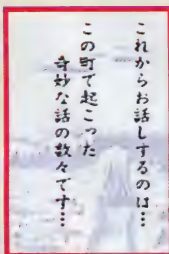 これからお話しするのは…
この町で起こった
奇妙な話の数々です…